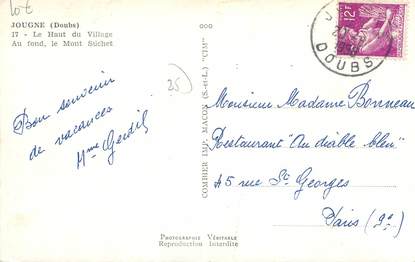 lot
JOUGNE (Doubs)
17 - Le Haut du Village
Au fond, le Mont Suchet
Bon souvenir
de vacances
Mme Gerdil
25
COMBIER IMP. MACON (S.-et-L.) "CIM"
12F
DOUBS
Monsieur Madame Bonneau
Restaurant "Au diable bleu"
45 rue St Georges
Paris (9e)
PHOTOGRAPHIE VÉRITABLE
Reproduction Interdite